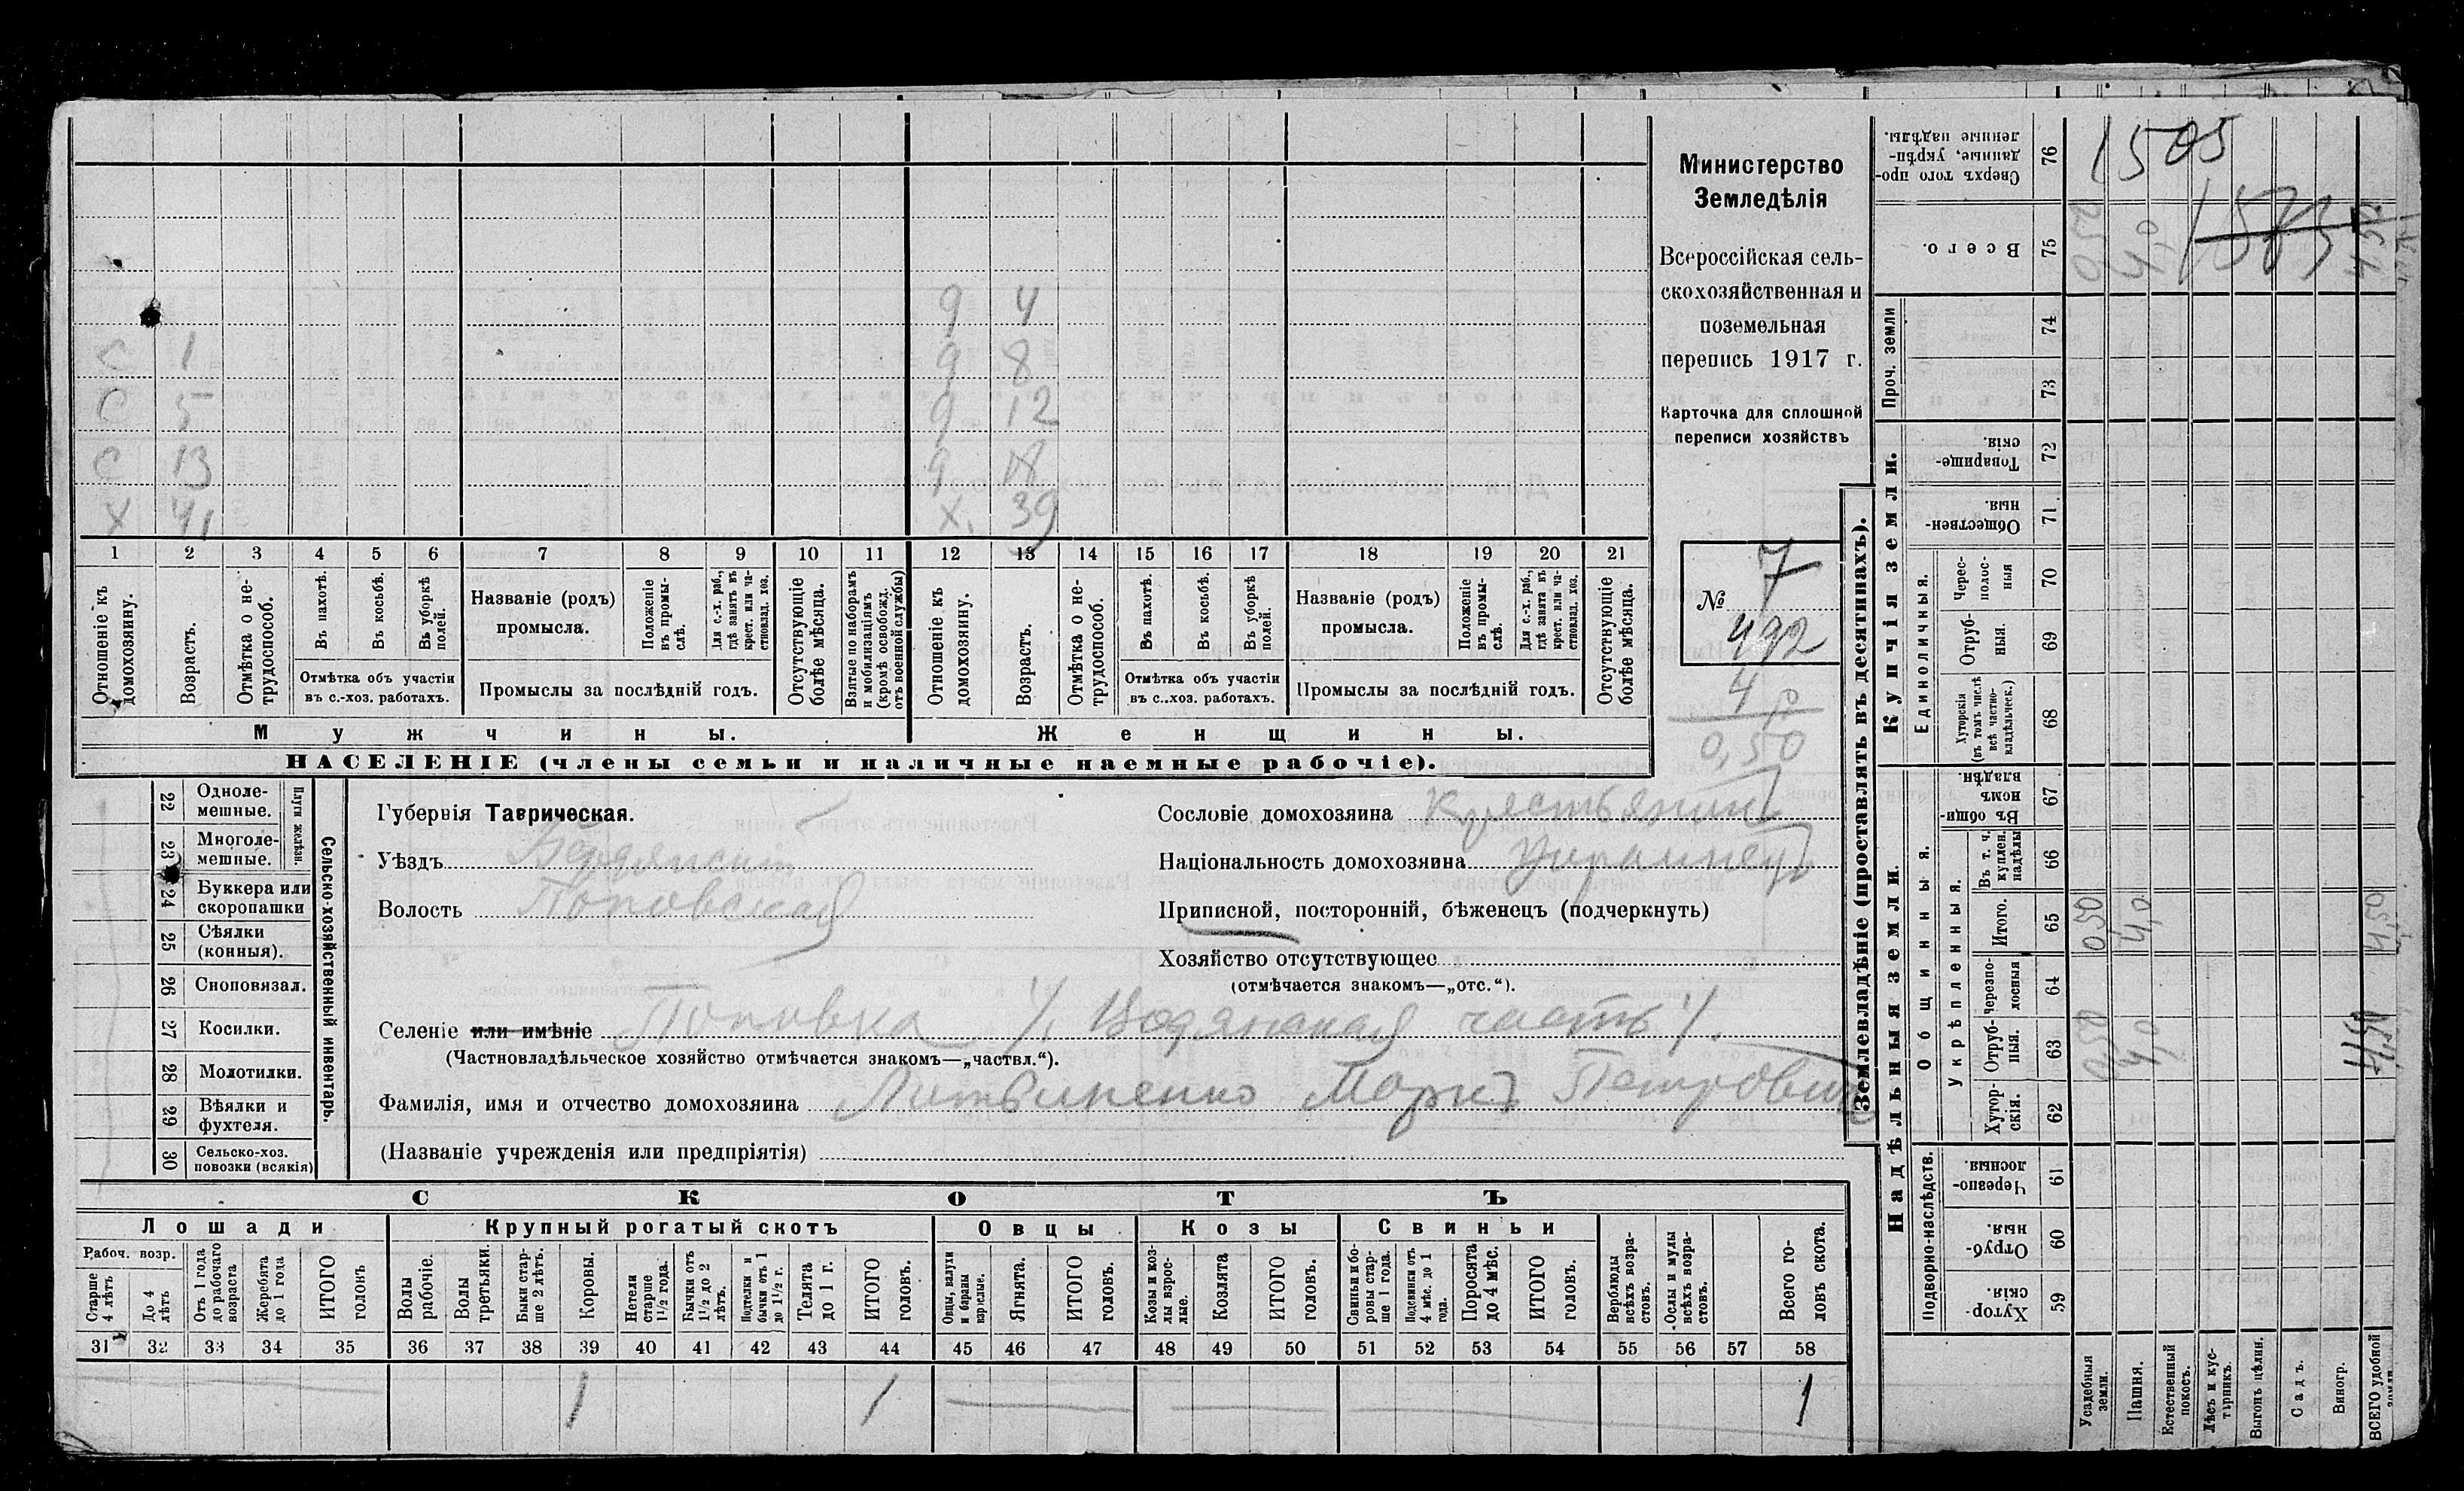 9 4
С 1 9 8
С 5 9 12
С 13 9 18
Х 41 Х. 39
1 2 3 4 5 6 7 8 9 10 11 12 13 14 15 16 17 18 19 20 21
Отношеніе къ домохозяину.
Возрастъ.
Отмѣтка о нетрудоспособ.
Въ пахотѣ.
Въ косьбѣ.
Въ уборкѣ полей.
Отмѣтка объ участіи
въ с.-хоз. работахъ.
Названіе (родъ)
промысла.
Положеніе въ промыслѣ.
Для с.-х. раб., гдѣ занятъ въ крест. или частновлад. хоз.
Промыслы за послѣдній годъ.
Отсутствующіе болѣе мѣсяца.
Взятые по наборамъ и мобилизаціямъ (кромѣ освобожд. отъ военной службы)
Отношеніе къ домохозяину.
Возрастъ.
Отмѣтка о нетрудоспособ.
Въ пахотѣ.
Въ косьбѣ.
Въ уборкѣ полей.
Отмѣтка объ участіи
въ с..хоз. работахъ.
Названіе (родъ)
промысла.
Положеніе въ промыслѣ.
Для с.-х. раб., гдѣ занята въ крест. или частновлад. хоз.
Промыслы за послѣдній годъ.
Отсутствующіе болѣе мѣсяца.
Мужчины. Женщины.
НАСЕЛЕНІЕ (члены семьи и наличные наемные рабочіе).
Министерство
Земледѣлія
Всероссійская сель-
скохозяйственная и
поземельная
перепись 1917 г.
Карточка для сплошной
переписи хозяйствъ
№ 7
492
4 р
0,50
22 Одноле-
мешные.
23 Многоле-
мешные.
Плуги желѣзн.
24 Буккера или
скоропашки
25 Сѣялки
(конныя).
26 Сноповязал.
27 Косилки.
28 Молотилки.
29 Вѣялки и
фухтеля.
30 Сельско-хоз.
повозки (всякія)
Сельско-хозяйственный инвентарь.
Губернія Таврическая.
Уѣздъ Бердянскій
Волость Поповская
Сословіе домохозяина Крестьянинъ
Національность домохозяина Украинецъ
Приписной, посторонній, бѣженецъ (подчеркнуть)
Хозяйство отсутствующее
(отмѣчается знакомъ—„отс.“).
Селеніе или имѣніе Поповка /. Водянская часть /.
(Частновладѣльческое хозяйство отмѣчается знакомъ—„частвл.“).
Фамилія, имя и отчество домохозяина Литвиненко Маркъ Петровичъ
(Названіе учрежденія или предпріятія)
СКОТЪ
Лошади Крупный рогатый скотъ Овцы Козы Свиньи
Рабоч. возр.
Старше 4 лѣтъ
До 4 лѣтъ
Отъ 1 года до рабочаго возраста
Жеребята до 1 года
ИТОГО головъ
Волы рабочіе.
Волы третьяки.
Быки старше 2 лѣтъ.
Коровы.
Нетели старше 1½ года.
Бычки отъ 1½ до 2 лѣтъ.
Подтелки и бычки отъ 1 до 1½ г.
Телята до 1 г.
ИТОГО головъ.
Овцы, валухи и бараны взрослые.
Ягнята.
ИТОГО головъ.
Козы и козлы взрослые.
Козлята
ИТОГО головъ.
Свиньи и боровы старше 1 года.
Подсвинки отъ 4 мѣс. до 1 года.
Поросята до 4 мѣс.
ИТОГО головъ.
Верблюды всѣхъ возрастовъ.
Ослы и мулы всѣхъ возрастовъ.
Всего головъ скота.
31 32 33 34 35 36 37 38 39 40 41 42 43 44 45 46 47 48 49 50 51 52 53 54 55 56 57 58
1 1 1
Землевладѣніе (проставлять въ десятинахъ).
Сверхъ того проданные, укрѣпленные надѣлы. 76
1505
Всего. 75
0,50 4,0 1583 4,50
Проч. земли
74
73
Купчія земли.
Товарищескія. 72
Общественныя. 71
Единоличныя.
Чересполосныя 70
Отрубныя. 69
Хуторскія (въ томъ числѣ всѣ частновладѣльческ.) 68
Надѣльныя земли.
Общинныя.
Въ общинномъ владѣн. 67
Укрѣпленныя.
Въ т. ч. куплен. надѣлы 66
Итого. 65
0,50 4,0 4,50
Черезполосныя 64
Отрубныя. 63
0,50 4,0 4,50
Хуторскія. 62
Подворно-наслѣдств.
Черезполосныя. 61
Отрубныя. 60
Хуторскія. 59
Усадебныя земли.
Пашня.
Естественный покосъ.
Лѣсъ и кустарникъ.
Выгонъ цѣлин.
Садъ.
Виногр.
ВСЕГО удобной земли